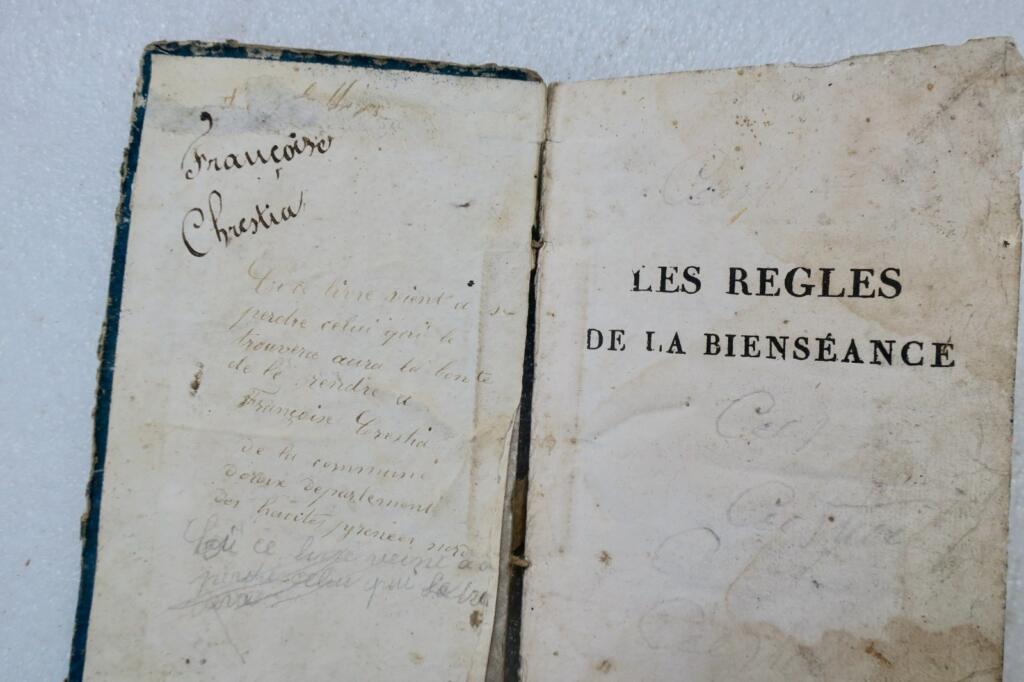 Françoise
Chrestia
Si ce livre vient a se
perdre celui qui le
trouvera aura la bonte
de le rendre a
Françoise Crestia
de la commune
departement
des hautes pyrenees
ce livre vient a
perdre celui qui le
LES REGLES
DE LA BIENSÉANCE